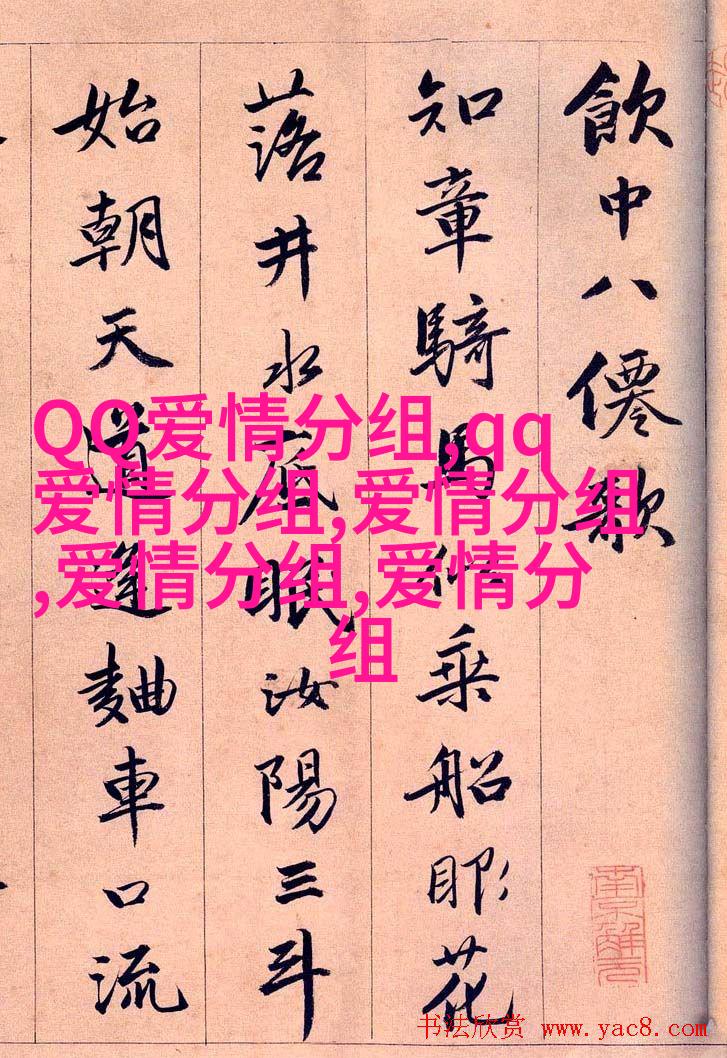 飲中八僊歌
知章騎馬似乘船眼花
落井水底眠汝陽三斗
始朝天道逢麯車口流
QQ爱情分组,qq
爱情分组,爱情分组
,爱情分组,爱情分
组
南京解元
书法欣赏 www.yac8.com